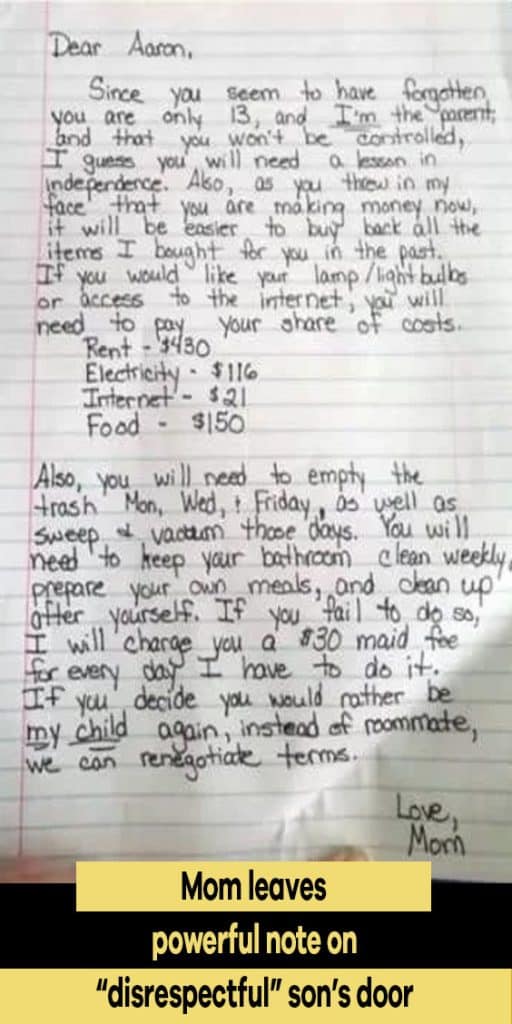 Dear Aaron,
Since you seem to have forgotten
you are only 13, and I'm the parent,
and that you won't be controlled,
I guess you will need a lesson in
independence. Also, as you threw in my
face that you are making money now,
it will be easier to buy back all the
items I bought for you in the past.
If you would like your lamp/lightbulbs
or access to the internet, you will
need to pay your share of costs.
Rent - $430
Electricity - $116
Internet - $21
Food - $150
Also, you will need to empty the
trash Mon, Wed, + Friday, as well as
sweep & vacuum those days. You will
need to keep your bathroom clean weekly,
prepare your own meals, and clean up
after yourself. If you fail to do so,
I will charge you a $30 maid fee
for every day I have to do it.
If you decide you would rather be
my child again, instead of roommate,
we can renegotiate terms.
Love,
Mom
Mom leaves
powerful note on
“disrespectful” son’s door